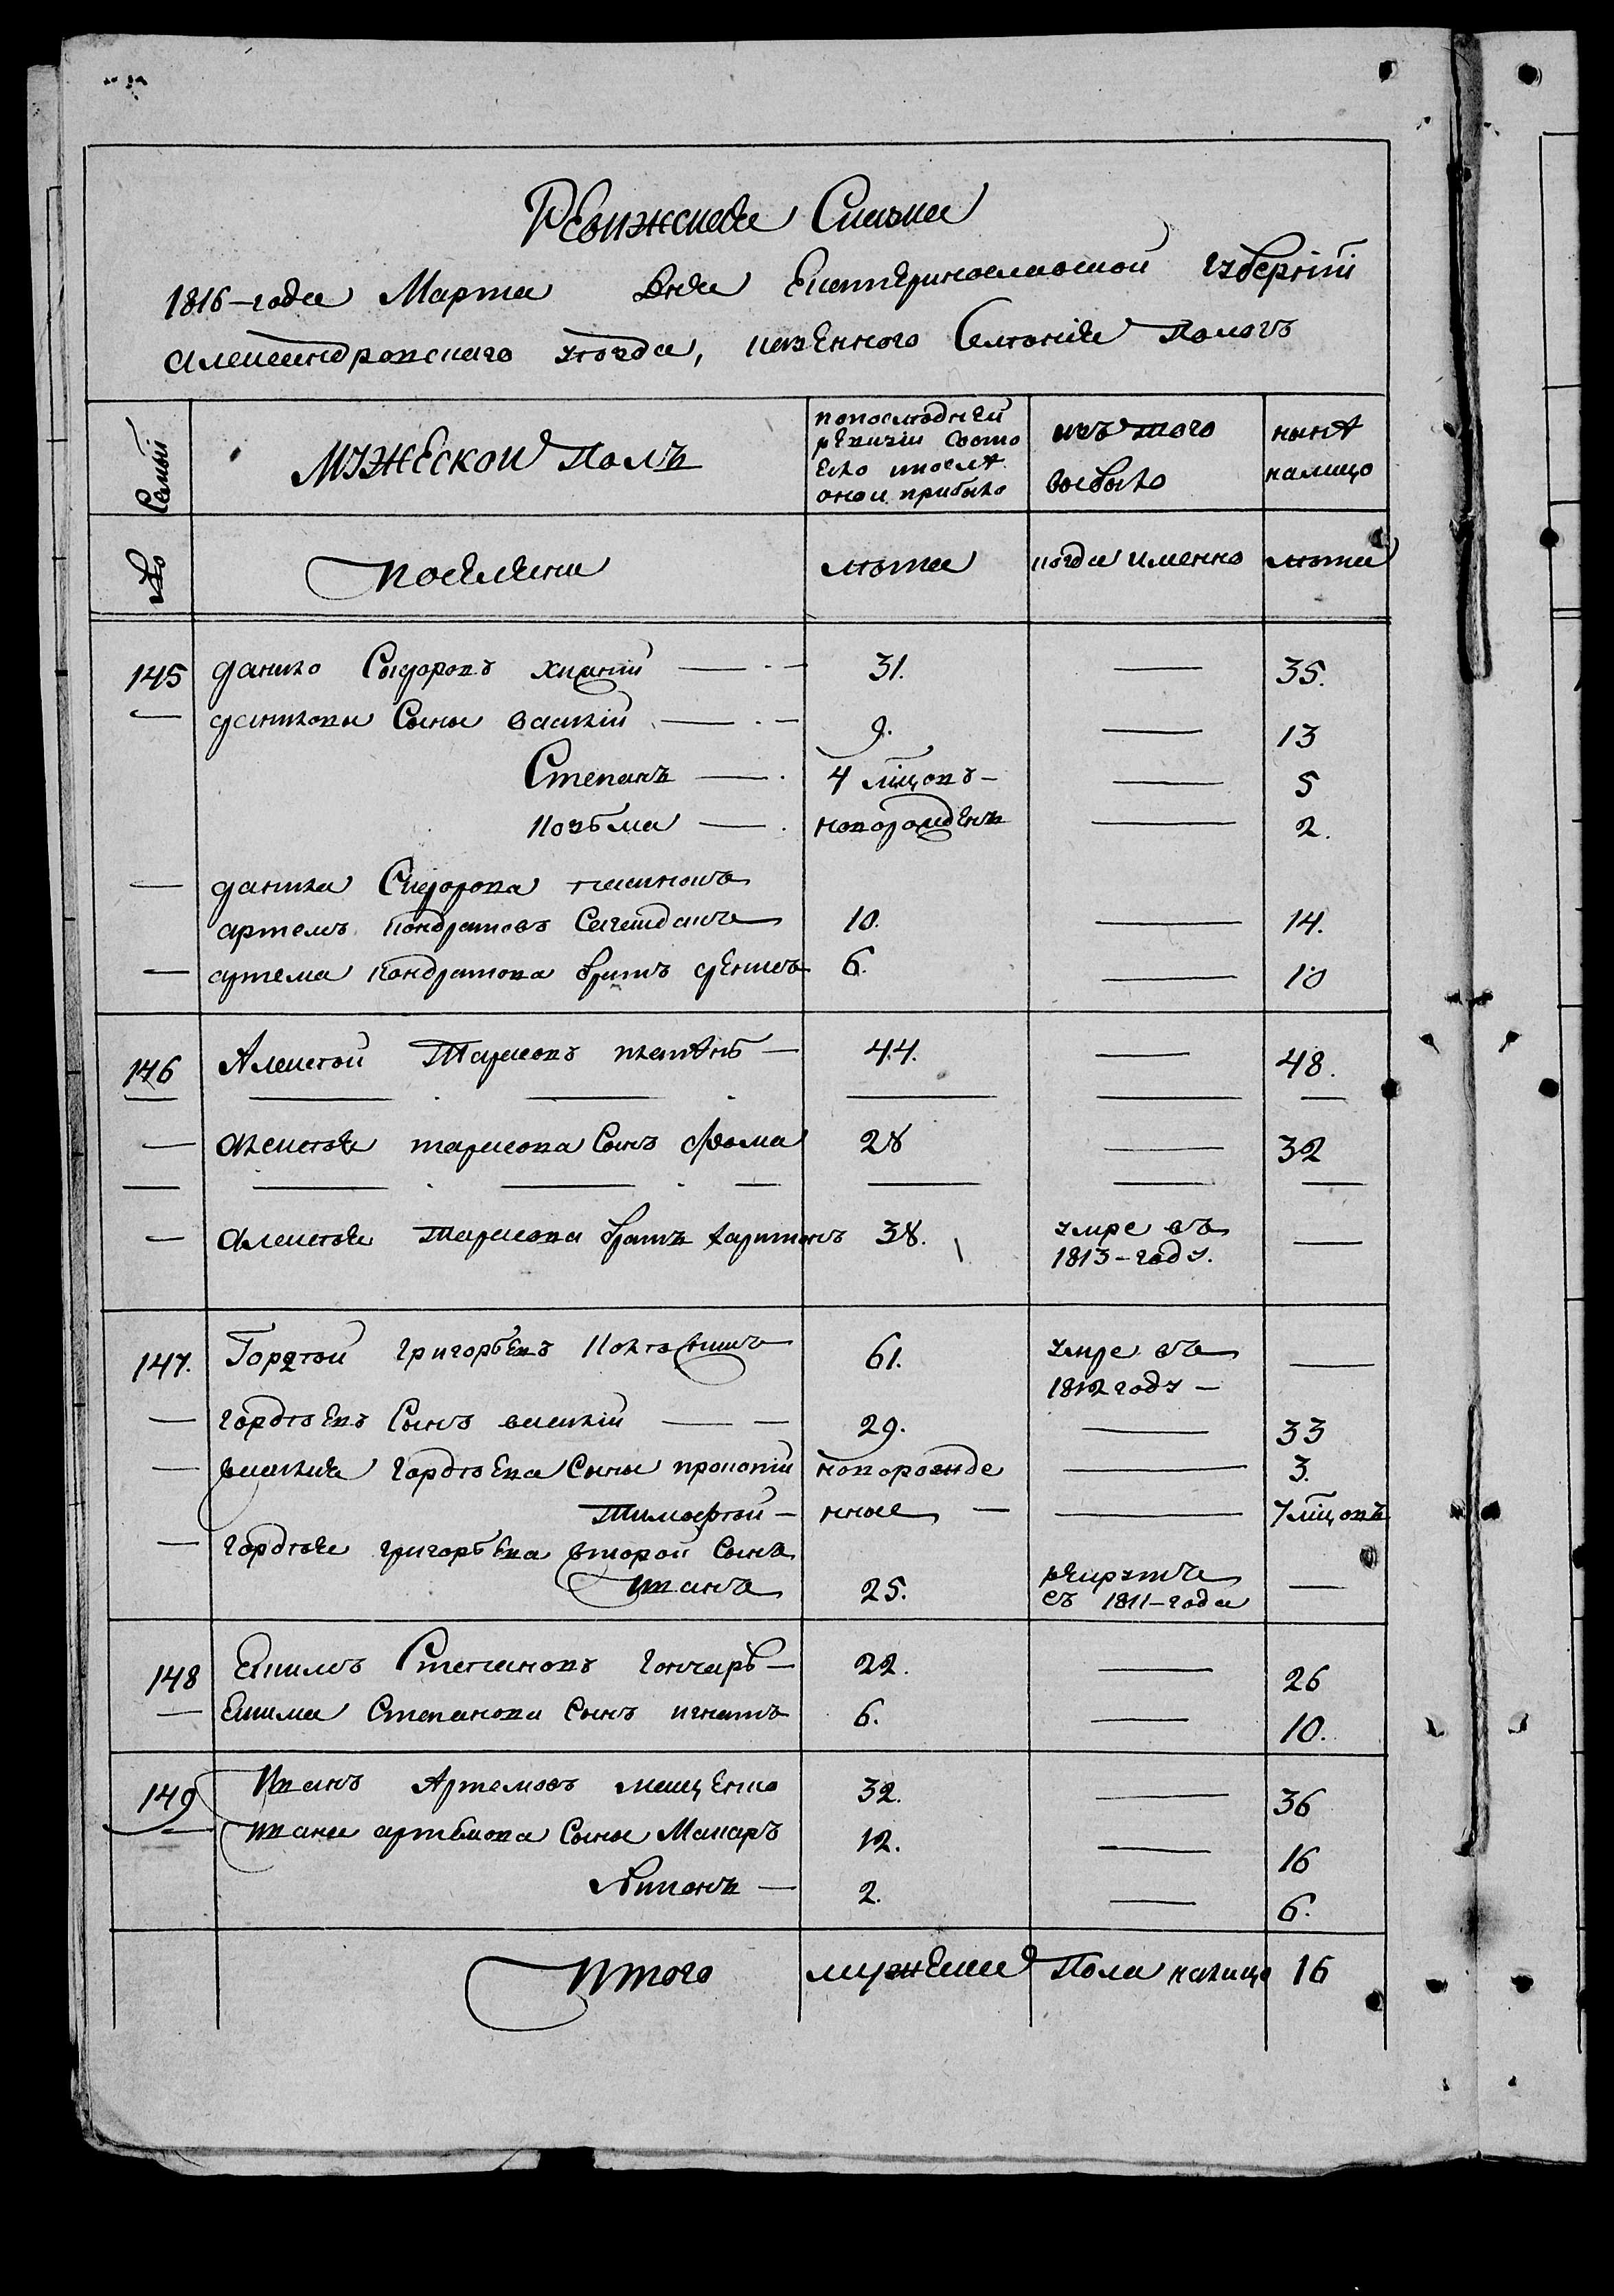 Ревижская Скаска
1816-года Марта Дня Екатеринославской губернїи
Александровскаго уѣзда, казенного Селѣнїя Пологъ
Семьи
Мужеской Полъ
попослѣдней
ревизїи состо
яло ипослѣ
оной прибыло
изъ того
выбыло
нынѣ
налицо
№
поселяни
лѣта
когда именно
лѣта
145 данило Сыдоровъ 31. — 35.
— даниловы Сыны василїй — 9. — 13
Степанъ — 4 мѣцовъ — 5
Козьма — новорожденъ — 2.
— данила Сидорова пасинокъ
артемъ кондратовъ Сагайдакъ 10. — 14.
— артема кондратова братъ денисъ 6. — 10
146 Алексѣй Тарасовъ 44. — 48.
— алексѣя тарасова Сынъ фома 28 — 32
— алексѣя тарасова братъ харитонъ 38. умре въ
1813-году. —
147. Гордѣй григорьевъ 61. умре въ —
1812 году —
— гордѣевъ Сынъ василїй — 29. — 33
— василия гордѣева Сыны прокопїй новорожде — 3.
Тимофѣй — нные — — 7 мїцовъ
— гордѣя григорьева второй Сынъ
иванъ 25. рекрутъ
съ 1811-года —
148 Екимъ Степановъ гончаръ — 22. — 26
— Екима Степанова Сынъ игнатъ 6. — 10.
149 Иванъ Артемовъ мащенко 32. — 36
— ивана артемова Сыны Макаръ 12. — 16
— 2. — 6.
Итого мужеска Пола налицо 16